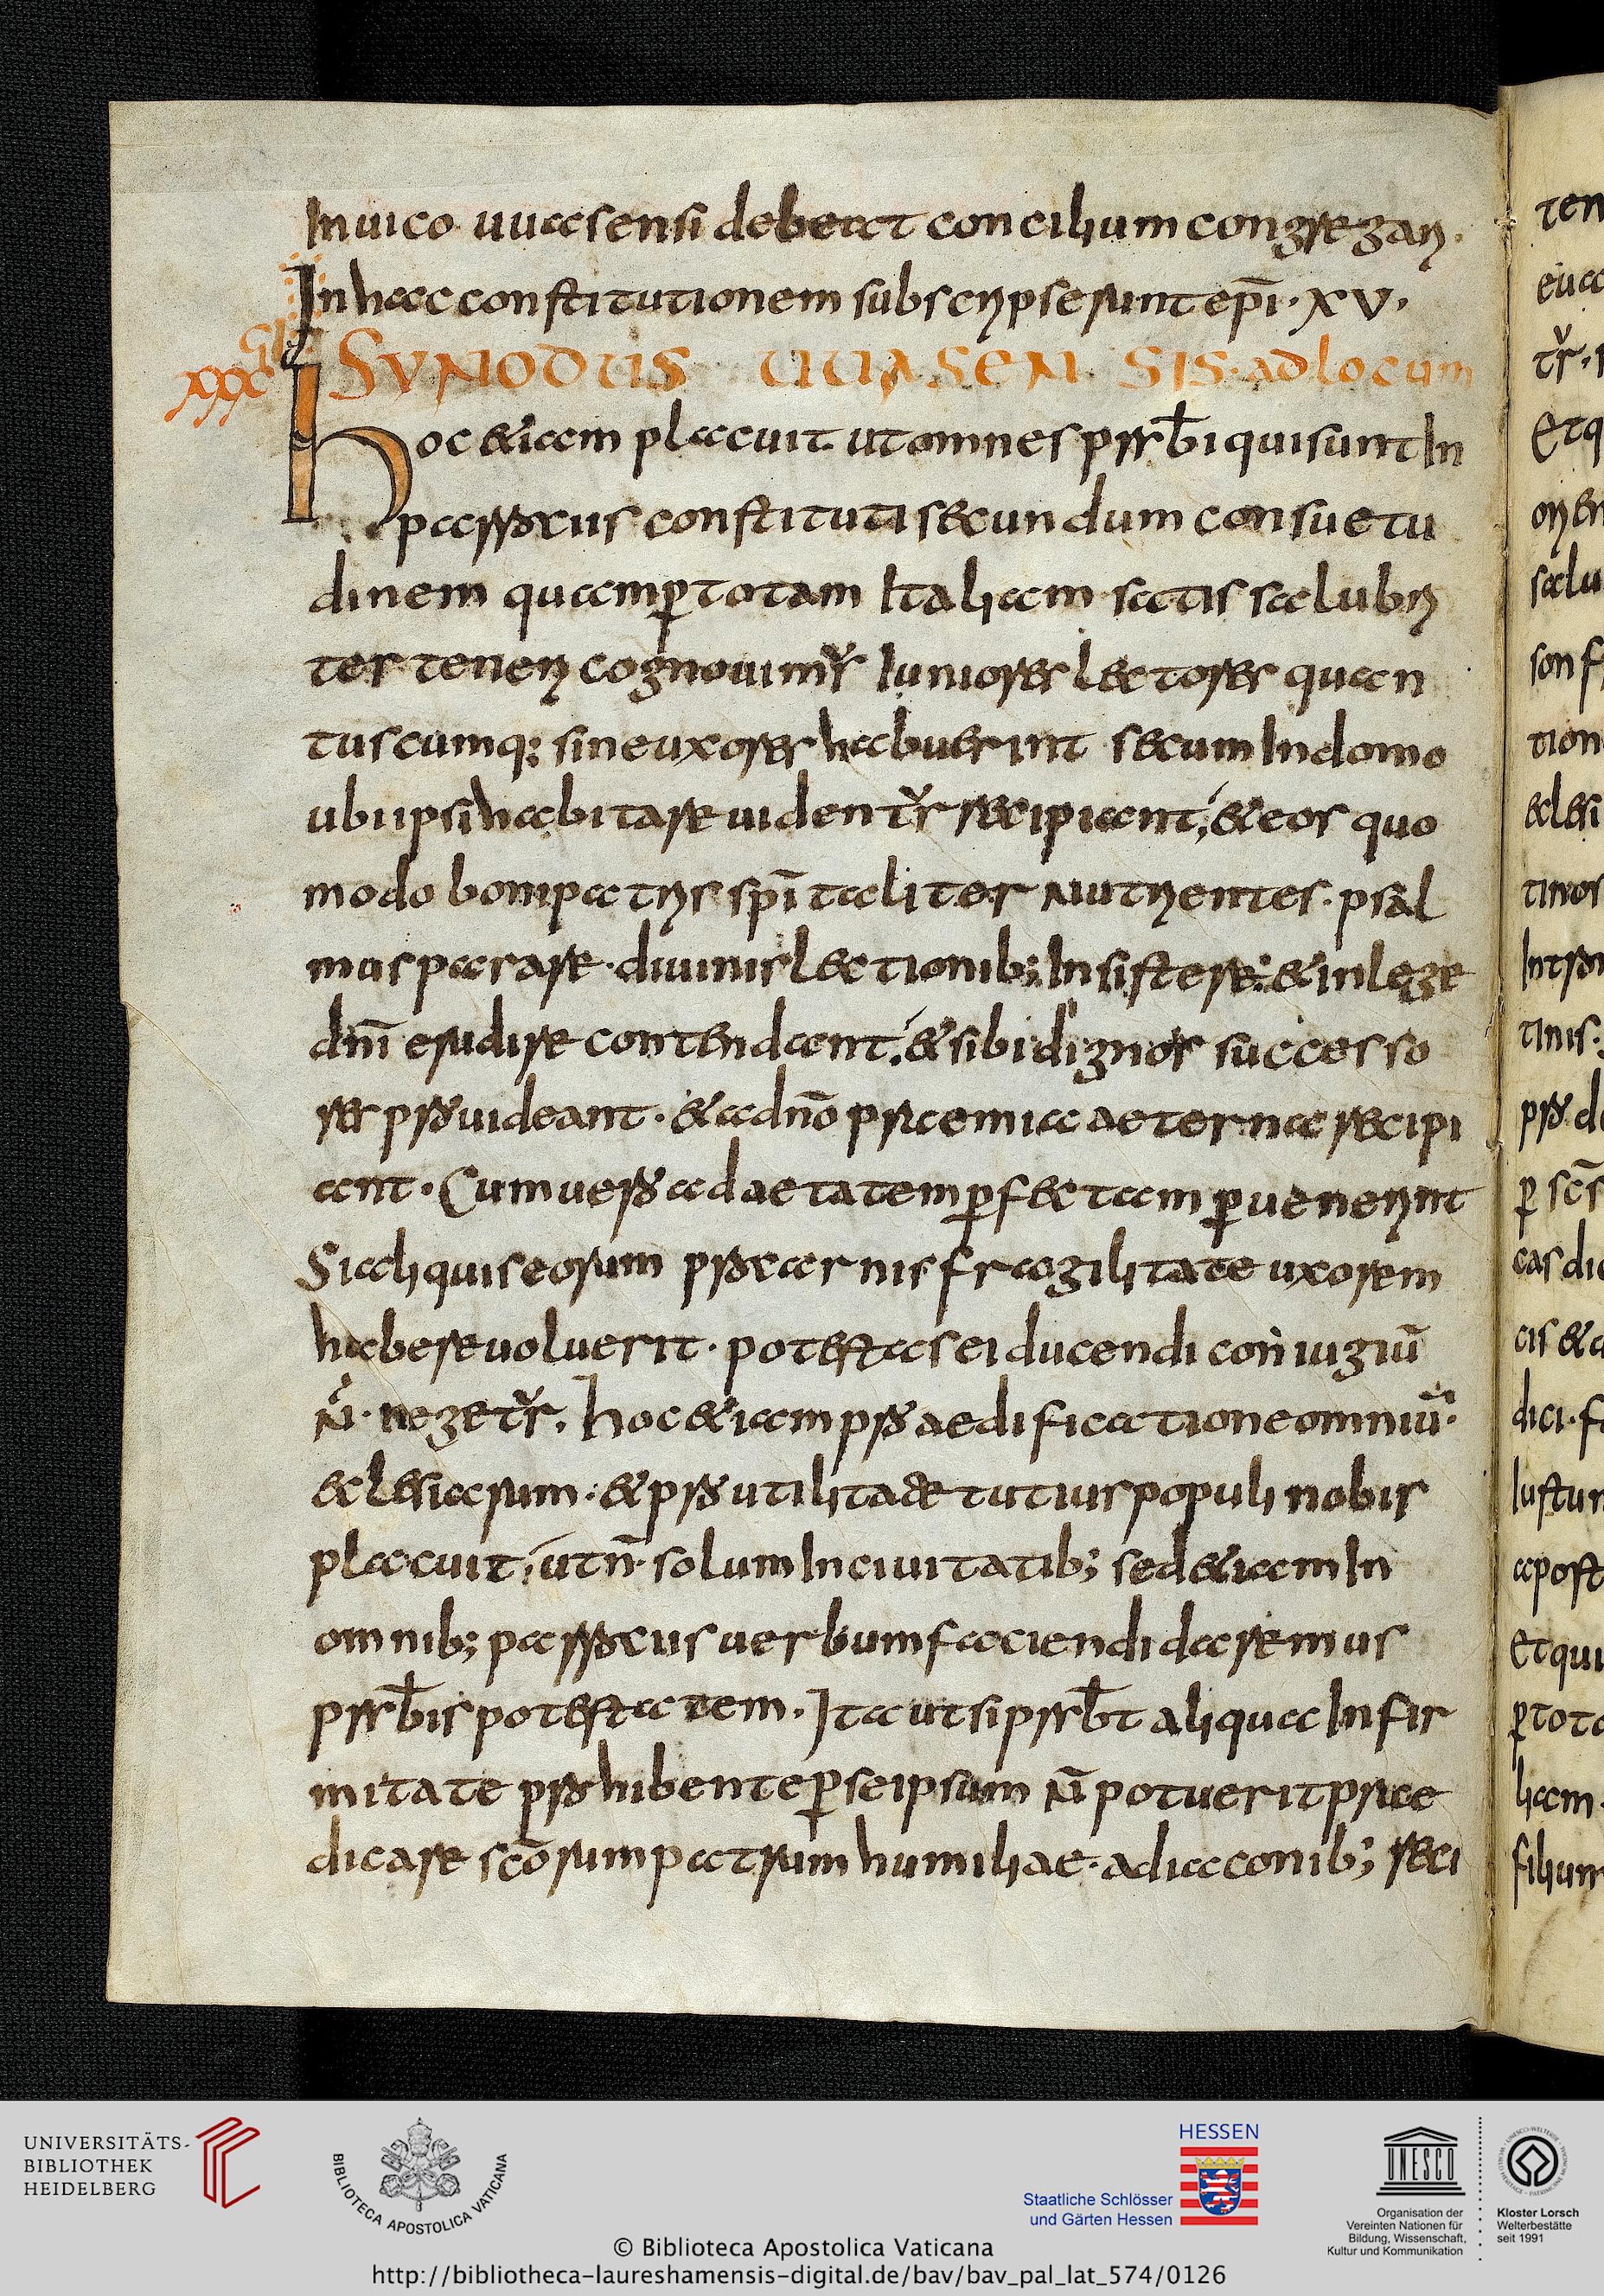 In uico uuasensi debeat concilium congregari.
In hac constitutionem subscripserunt ep̄i. xv.
xxx Gl SYNODUS UUASENSIS. ad locum
Hoc etiam placuit ut omnes prsb̄i qui sunt In
parrociis constituti secundum consuetu
dinem quam ꝑ totam Italiam satis salubri
ter teneri cognouimꝰr Iuniores lectores quan
tuscumq; sine uxores habuerint secum In domo
ubi ipsi habitare uident͛r recipiant; et eos quo
modo boni patris spīitaliter nutrientes. psal
mus parare. diuinis lectionib; Insistere; et in lege
dnī erudire contendant; et sibi dignos successo
res prouideant. et a dnō premia aeterna recipi
ant. Cum uero ad aetatem ꝑfectam ꝑuenerint
Si aliquis eorum pro carnis fragilitate uxorem
habere voluerit. potestas ei ducendi coniugiū
n̄. neget͛r. hoc etiam pro aedificatione omniū.
eclesiarum. et pro utilitate tutius populi nobis
placuit; ut n̄. solum In ciuitatib; sed etiam In
omnib; parrocius uerbum faciendi daremus
prsb̄is potestatem. Ita ut si prsb̄t aliqua Infir
mitate prohibente ꝑ se ipsum n̄ potuerit prae
dicare scōrum patrum humiliae. adiaconib; reci
ten
eua
t͛r.
Et q
orien
salu
son f
tion
eclesi
tinos
Intro
tinis.
pro d
ꝑ scs̄
cas di
cis et a
dici. fa
lustur
apost
Et qui
ꝑ tota
liam.
filium
UNIVERSITÄTS-
BIBLIOTHEK
HEIDELBERG
BIBLIOTECA APOSTOLICA VATICANA
HESSEN
Staatliche Schlösser
und Gärten Hessen
UNESCO
Organisation der
Vereinten Nationen für
Bildung, Wissenschaft,
Kultur und Kommunikation
Kloster Lorsch
Welterbestätte
seit 1991
© Biblioteca Apostolica Vaticana
http://bibliotheca-laureshamensis-digital.de/bav/bav_pal_lat_574/0126